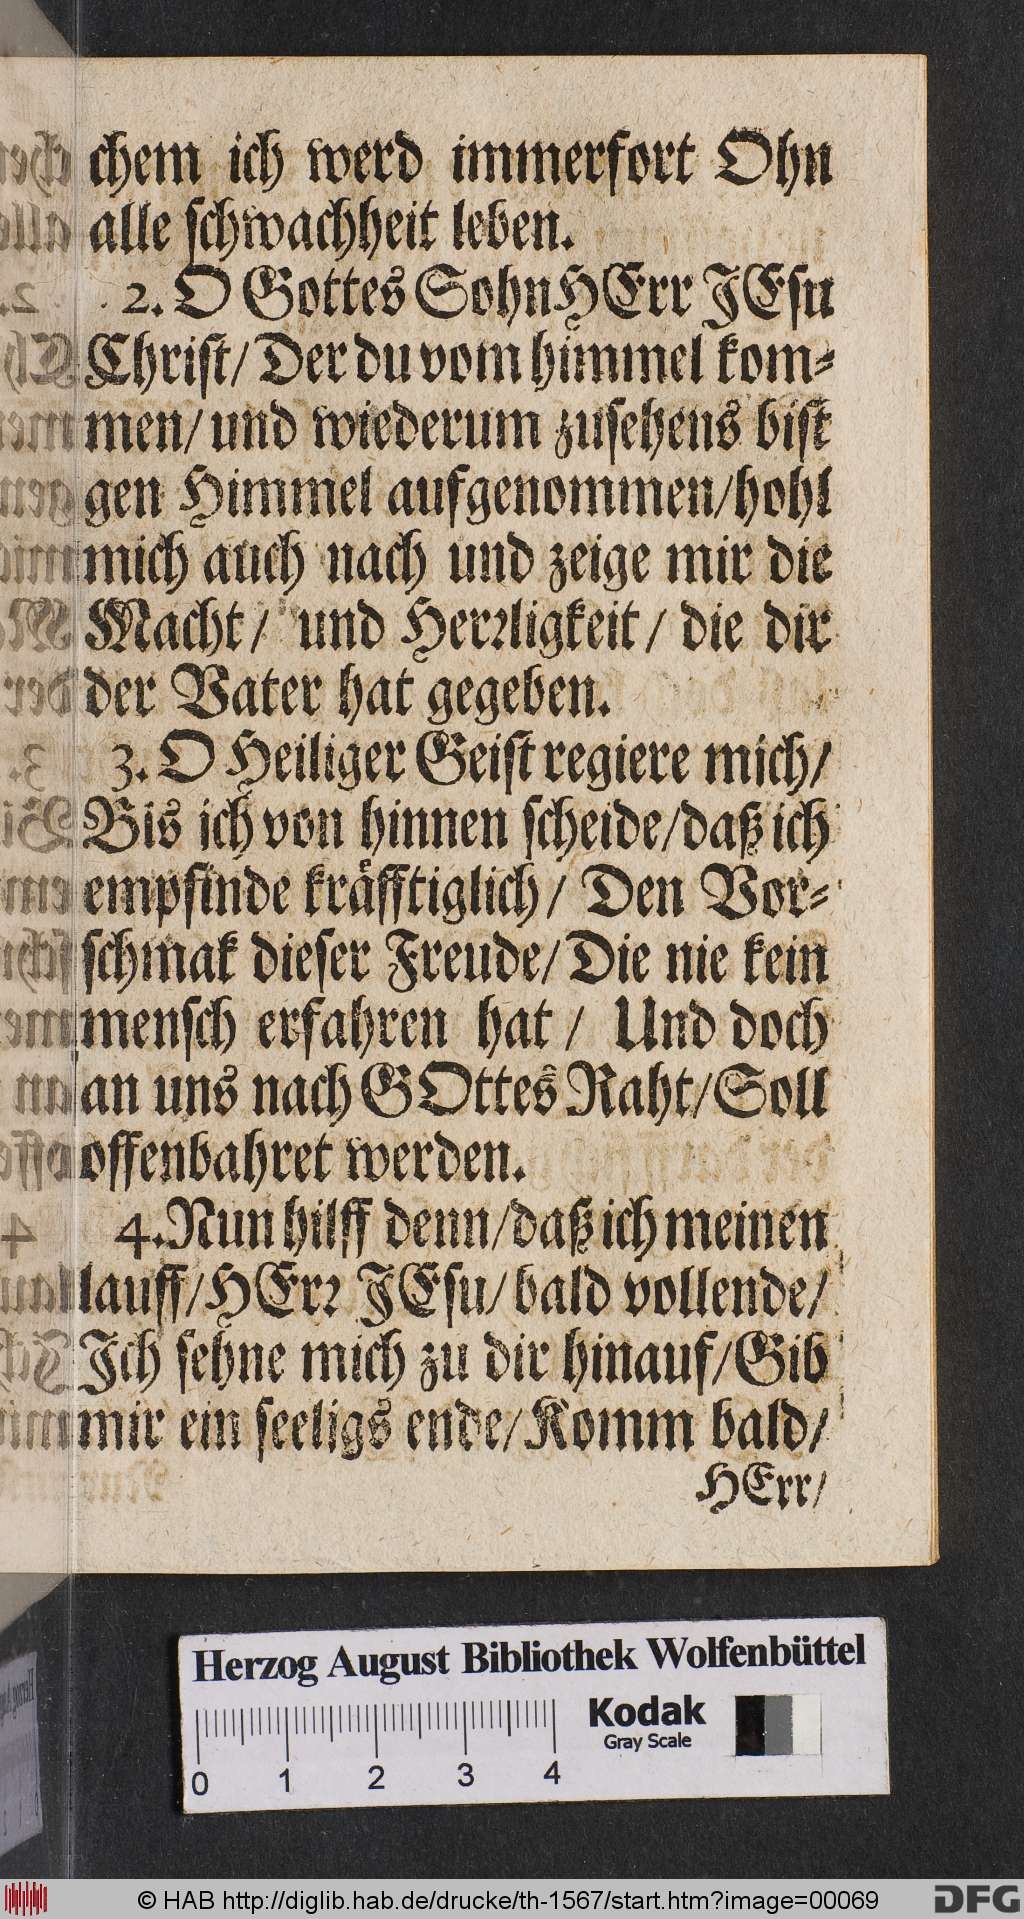 chem ich werd immerfort Ohn
alle schwachheit leben.
2. O Gottes Sohn HErr JEsu
Christ/ Der du vom himmel kom-
men/ und wiederum zusehens bist
gen Himmel aufgenommen/ hohl
mich auch nach und zeige mir die
Macht/ und Herꝛligkeit/ die dir
der Vater hat gegeben.
3. O Heiliger Geist regiere mich/
Bis ich von hinnen scheide/ daß ich
empfinde kräfftiglich/ Den Vor-
schmak dieser Freude/ Die nie kein
mensch erfahren hat/ Und doch
an uns nach GOttes Raht/ Soll
offenbahret werden.
4. Nun hilff denn/ daß ich meinen
lauff/ HErꝛ JEsu/ bald vollende/
Ich sehne mich zu dir hinauf/ Gib
mir ein seeligs ende/ Komm bald/
HErr/
Herzog August Bibliothek Wolfenbüttel
Kodak
Gray Scale
0 1 2 3 4
© HAB http://diglib.hab.de/drucke/th-1567/start.htm?image=00069
DFG